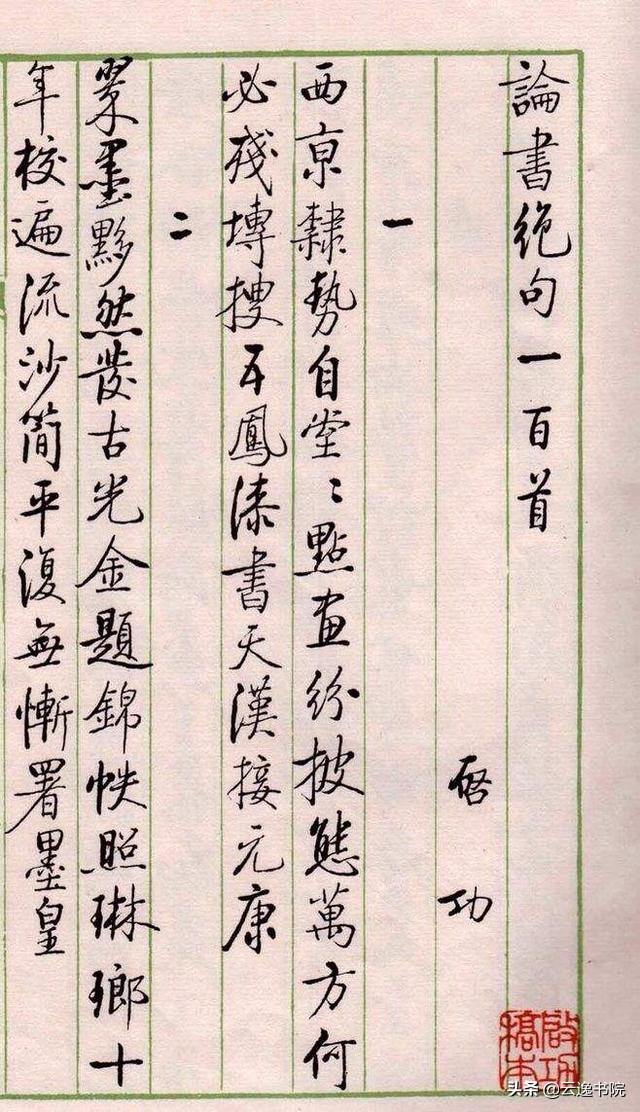 論書絶句一百首
啓功
一
西京隸勢自堂〻點畫紛披態萬方何
必殘塼搜五鳳漆書天漢接元康
二
翠墨黟然發古光金題錦帙照琳瑯十
年校遍流沙簡平復無慚署墨皇
啟功
稿本
头条 @云逸书院